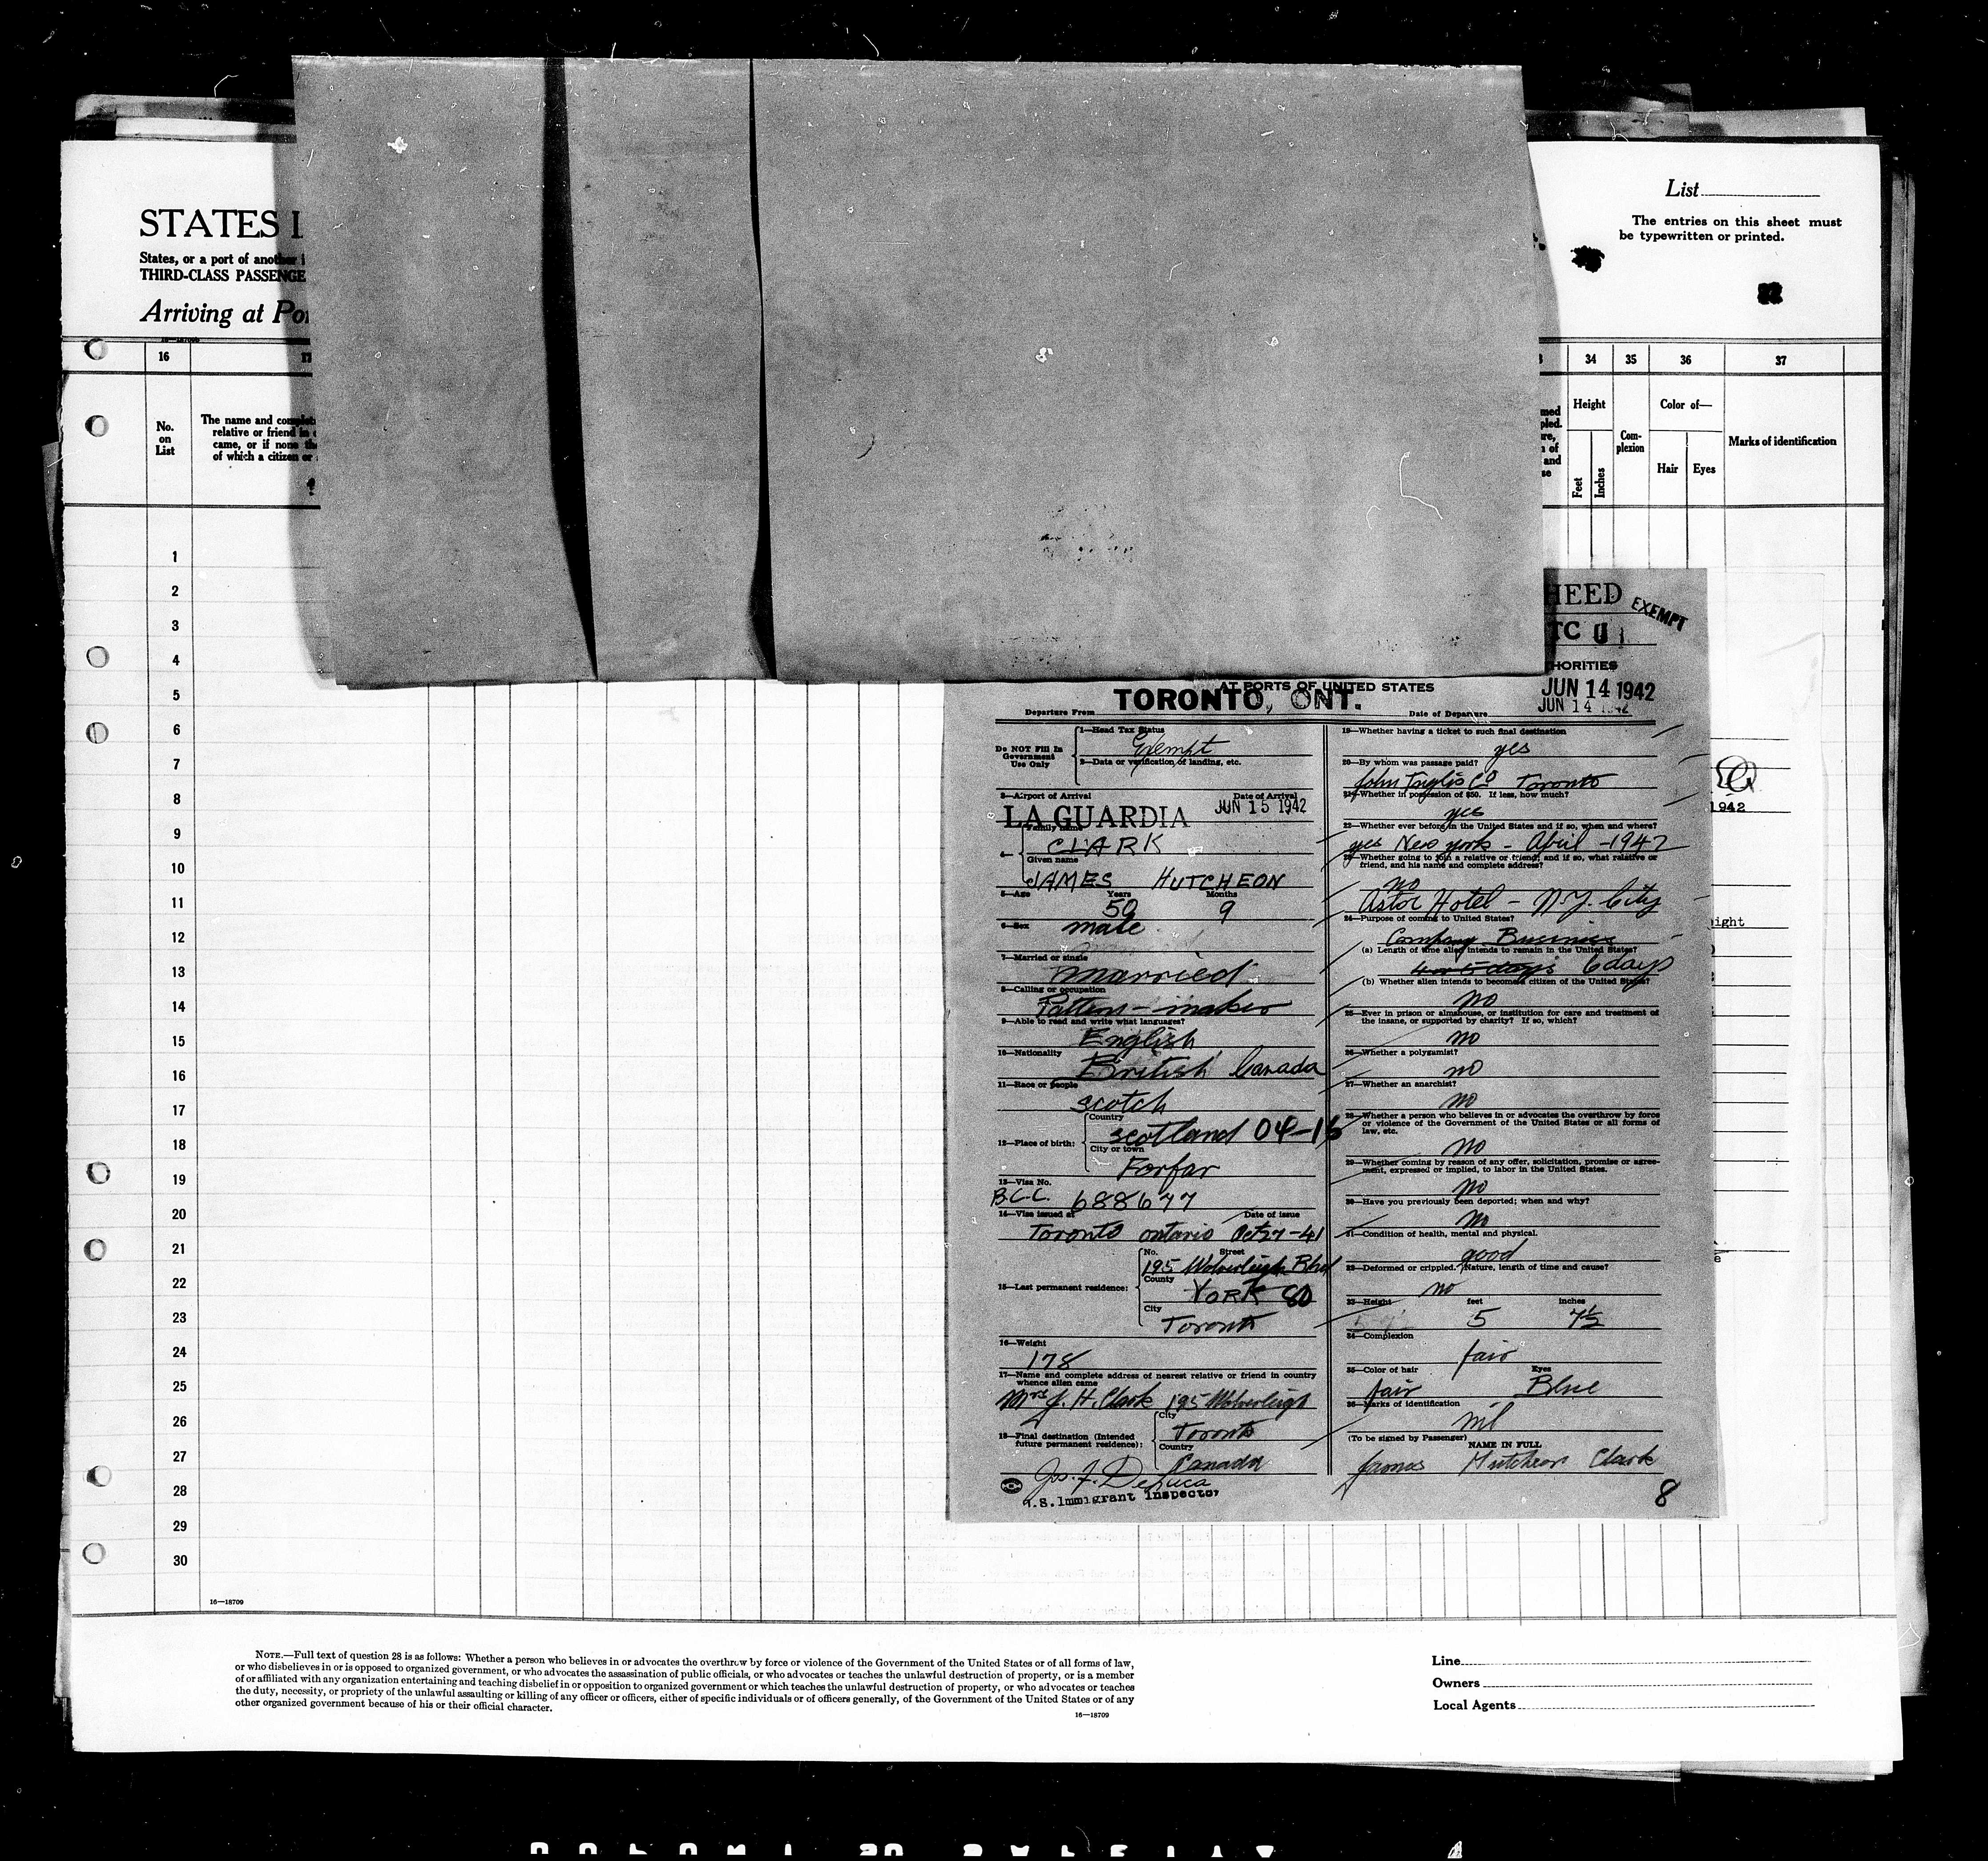 STATES
States, or a port of another
THIRD-CLASS PASSENGE
Arriving at Po
List
The entries on this sheet must
be typewritten or printed.
16
34 35 36 37
No.
on
List
The name and complet
relative or friend in
came, or if none th
of which a citizen or
Height
Feet
Inches
Com-
plexion
Color of—
Hair Eyes
Marks of identification
1
2
3
4
5
6
7
8
9
10
11
12
13
14
15
16
17
18
19
20
21
22
23
24
25
26
27
28
29
30
16—18709
HEED EXEMPT
TC
HORITIES
AT PORTS OF UNITED STATES
JUN 14 1942
JUN 14
Departure From TORONTO, ONT. Date of Departure
Do NOT Fill In
Government
Use Only
1—Head Tax Status
Exempt
2—Data or verification of landing, etc.
3—Airport of Arrival Date of Arrival
LA GUARDIA JUN 15 1942
Family name
4— CLARK
Given name
JAMES HUTCHEON
5—Age Years Months
50 9
6—Sex
male
7—Married or single
married
8—Calling or occupation
Pattern-maker
9—Able to read and write what languages?
English
10—Nationality
British Canada
11—Race or people
scotch
12—Place of birth:
Country
scotland 04-16
City or town
Forfar
13—Visa No.
B.C.C. 688677
14—Visa issued at Date of issue
Toronto ontario Oct 27-41
15—Last permanent residence:
No. Street
195 Wolverleigh Blvd
County
YORK 80
City
Toronto
16—Weight
178
17—Name and complete address of nearest relative or friend in country
whence alien came
Mrs J. H. Clark 195 Wolverleigh
18—Final destination (Intended
future permanent residence):
City
Toronto
Country
Canada
Jos. F. DeLuca
U.S. Immigrant Inspector
19—Whether having a ticket to such final destination
yes
20—By whom was passage paid?
John Inglis Co Toronto
21—Whether in possession of $50. If less, how much?
yes
22—Whether ever before in the United States and if so, when and where?
yes New York - April -1942
23—Whether going to join a relative or friend, and if so, what relative or
friend, and his name and complete address?
no
Astor Hotel - N.Y. City
24—Purpose of coming to United States?
Company Business
(a) Length of time alien intends to remain in the United States?
4 or 5 days 6 days
(b) Whether alien intends to become a citizen of the United States?
no
25—Ever in prison or almshouse, or institution for care and treatment of
the insane, or supported by charity? If so, which?
no
26—Whether a polygamist?
no
27—Whether an anarchist?
no
28—Whether a person who believes in or advocates the overthrow by force
or violence of the Government of the United States or all forms of
law, etc.
no
29—Whether coming by reason of any offer, solicitation, promise or agree-
ment, expressed or implied, to labor in the United States.
no
30—Have you previously been deported; when and why?
no
31—Condition of health, mental and physical.
good
32—Deformed or crippled. Nature, length of time and cause?
no
33—Height feet inches
5 7½
34—Complexion
fair
35—Color of hair Eyes
fair Blue
36—Marks of identification
nil
(To be signed by Passenger)
NAME IN FULL
James Hutcheon Clark
8
1942
ight
NOTE.—Full text of question 28 is as follows: Whether a person who believes in or advocates the overthrow by force or violence of the Government of the United States or of all forms of law,
or who disbelieves in or is opposed to organized government, or who advocates the assassination of public officials, or who advocates or teaches the unlawful destruction of property, or is a member
of or affiliated with any organization entertaining and teaching disbelief in or opposition to organized government or which teaches the unlawful destruction of property, or who advocates or teaches
the duty, necessity, or propriety of the unlawful assaulting or killing of any officer or officers, either of specific individuals or of officers generally, of the Government of the United States or of any
other organized government because of his or their official character.
16—18709
Line
Owners
Local Agents